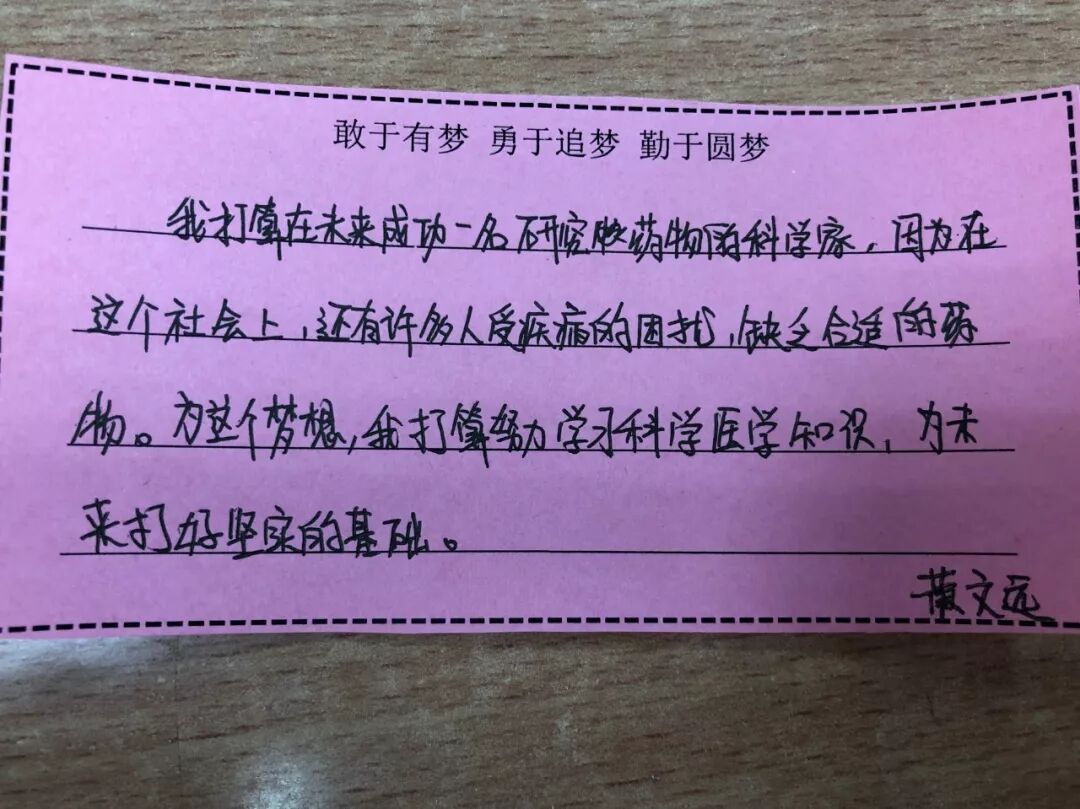 敢于有梦 勇于追梦 勤于圆梦
我打算在未来成功一名研究药物的科学家，因为在
这个社会上，还有许多人受疾病的困扰，缺乏合适的药
物。为这个梦想，我打算努力学习科学医学知识，为未
来打好坚实的基础。
黄文远